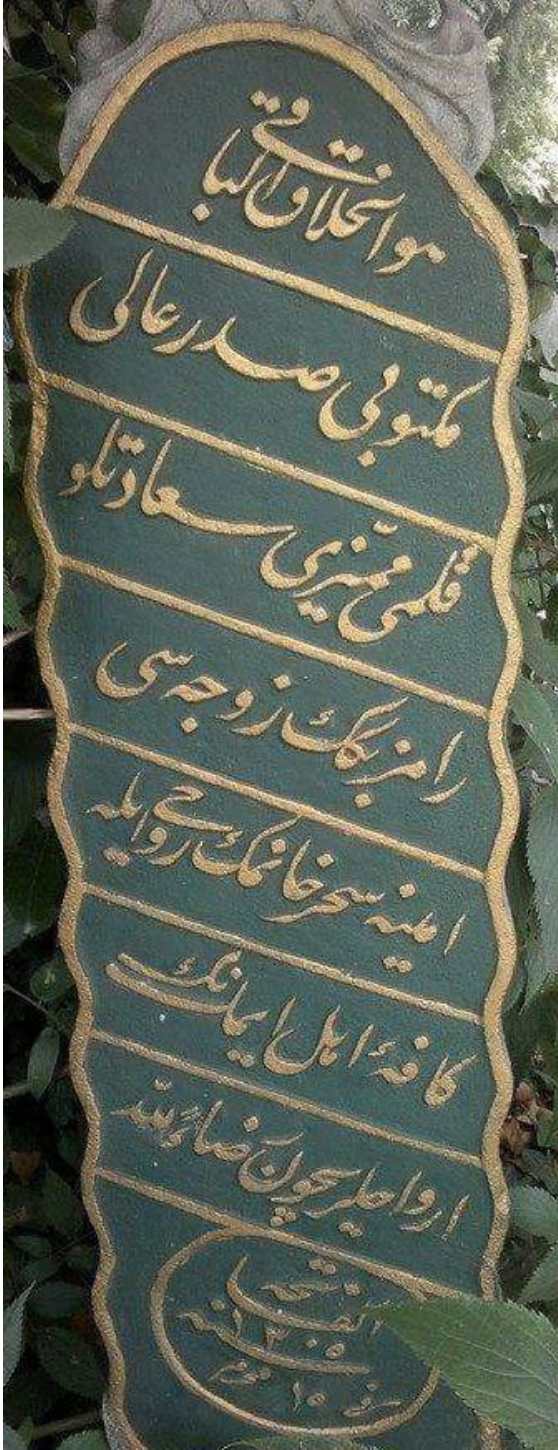 هو الخلاق الباقی
مکتوبی صدر عالی
قلمی ممیزی سعادتلو
رامز بكك زوجه سی
امینه سحر خانمك روحی ایله
كافهٔ اهل ایمانك
ارواحلریچون رضاءً لله
الفاتحه
سنه ١٣٠٩
فی ١٥ محرم